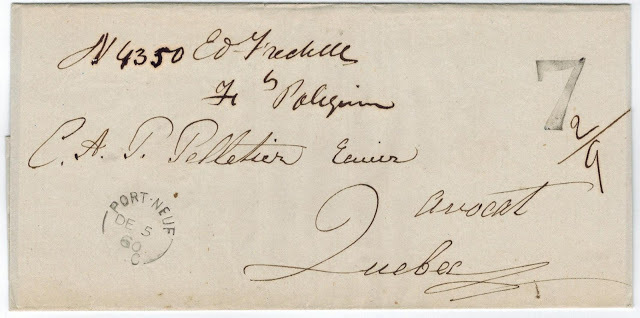 N 4350 Ed Frechette
Fs Poliquin
7
2/9
C. A. P. Pelletier Ecuier
avocat
Quebec
PORT-NEUF
DE 5
60
C